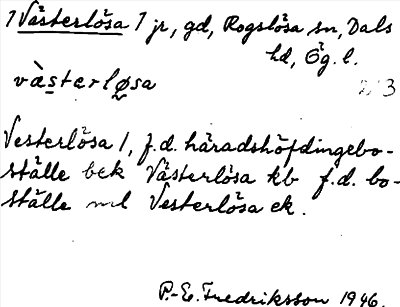 1 Västerlösa 1 jr, gd, Rogslösa sn, Dals
hd, Ög. l.
vàsterlø̬sa
Vesterlösa 1, f.d. häradshöfdingebo-
ställe bek Västerlösa kb f.d. bo-
ställe ml Vesterlösa ek.
P.-E. Fredriksson 1946.